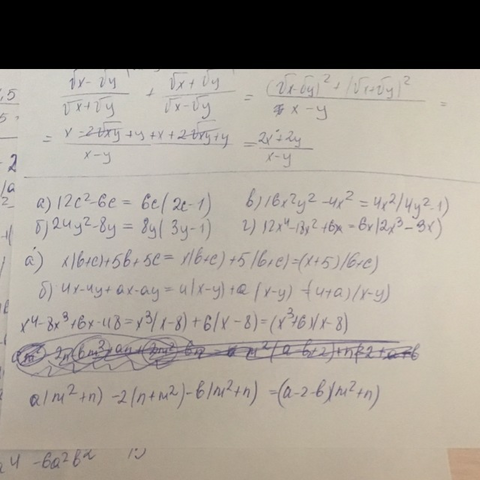 (√x-√y)/(√x+√y) + (√x+√y)/(√x-√y) = ((√x-√y)²+(√x+√y)²)/(x-y) =
= (x-2√xy+y+x+2√xy+y)/(x-y) = (2x+2y)/(x-y)
а) 12c²-6c = 6c(2c-1) в) 16x²y²-4x² = 4x²(4y²-1)
б) 24y²-8y = 8y(3y-1) г) 12x⁴-18x²+6x = 6x(2x³-3x)
а) x(b+c)+5b+5c = x(b+c)+5(b+c)=(x+5)(b+c)
б) 4x-4y+ax-ay=4(x-y)+a(x-y)=(4+a)(x-y)
x⁴-8x³+6x-48=x³(x-8)+6(x-8)=(x³+6)(x-8)
a(m²+n)-2(n+m²)-b(m²+n)=(a-2-b)(m²+n)
-6a²b²